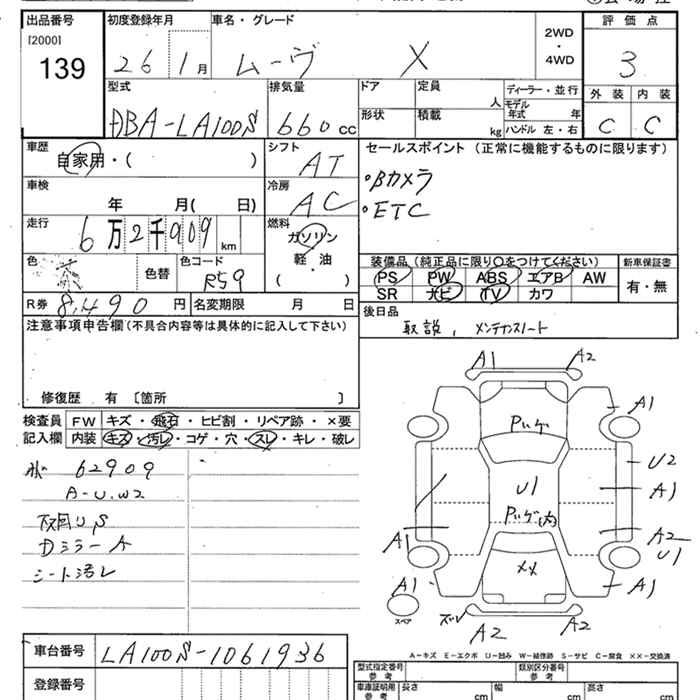 出品番号 初度登録年月 車名・グレード 2WD・4WD 評価点
[2000]
139 26 1月 ムーヴ X 3
型式 排気量 ドア 定員 人 ディーラー・並行 外装 内装
DBA-LA100S 660cc 形状 積載 kg モデル年式 年 ハンドル 左・右 C C
車歴 シフト セールスポイント (正常に機能するものに限ります)
自家用・( ) AT ・Bカメラ
車検 冷房 ・ETC
年 月( 日) AC
走行 燃料
6万2千909km ガソリン
軽・油
( )
色 色替 色コード R59
装備品(純正品に限り○をつけてください) 新車保証書
PS PW ABS エアB AW 有・無
SR ナビ TV カワ
R券 8,490円 名変期限 月 日 後日品
取説, メンテナンスノート
注意事項申告欄(不具合内容等は具体的に記入して下さい)
修復歴 有 〔箇所 〕
検査員 FW キズ・飛石・ヒビ割・リペア跡・×要
記入欄 内装 キズ・汚レ・コゲ・穴・スレ・キレ・破レ
62909
A-U.W2
下回りS
DミラーA
シート汚レ
A1 A2
A1
Pいげ
U2
U1 A1
Pいげ内
A1 A2
U1
××
A1 A1
スペア
A2 A2
A-キズ E-エクボ U-凹み W-補修跡 S-サビ C-腐食 ××-交換済
車台番号 LA100S-1061936
登録番号
型式指定番号 類別区分番号
参考 参考
車庫証明用 長さ 幅 高さ
参考 cm cm cm